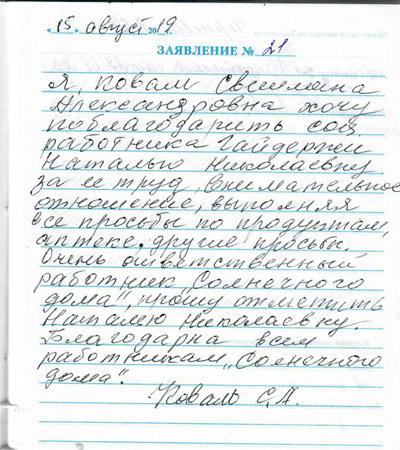 "15" август 2019
ЗАЯВЛЕНИЕ № 21
Я, Коваль Светлана
Александровна хочу
поблагодарить соц.
работника Гайдержи
Наталью Николаевну
за ее труд, внимательное
отношение, выполняя
все просьбы по продуктам,
аптеке. другие просьбы.
Очень ответственный
работник "Солнечного
дома", прошу отметить
Наталью Николаевну.
Благодарна всем
работникам "Солнечного
дома".
Коваль С.А.